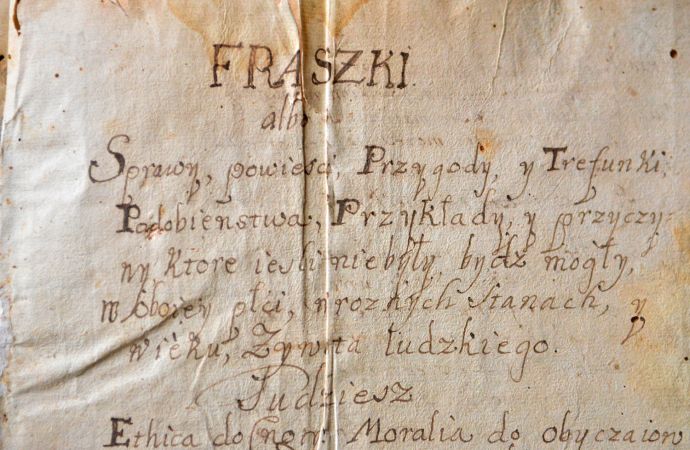 FRASZKI
albo
Sprawy, powieści, Przygody, y Trefunki,
Podobienstwa, Przykłady, y przyczy-
ny ktore iesli niebyły, bydź mogły,
w oboiey płci, y roznych stanach, y
wieku, Zywota ludzkiego.
Tudziesz
Ethica Moralia do obyczaiow